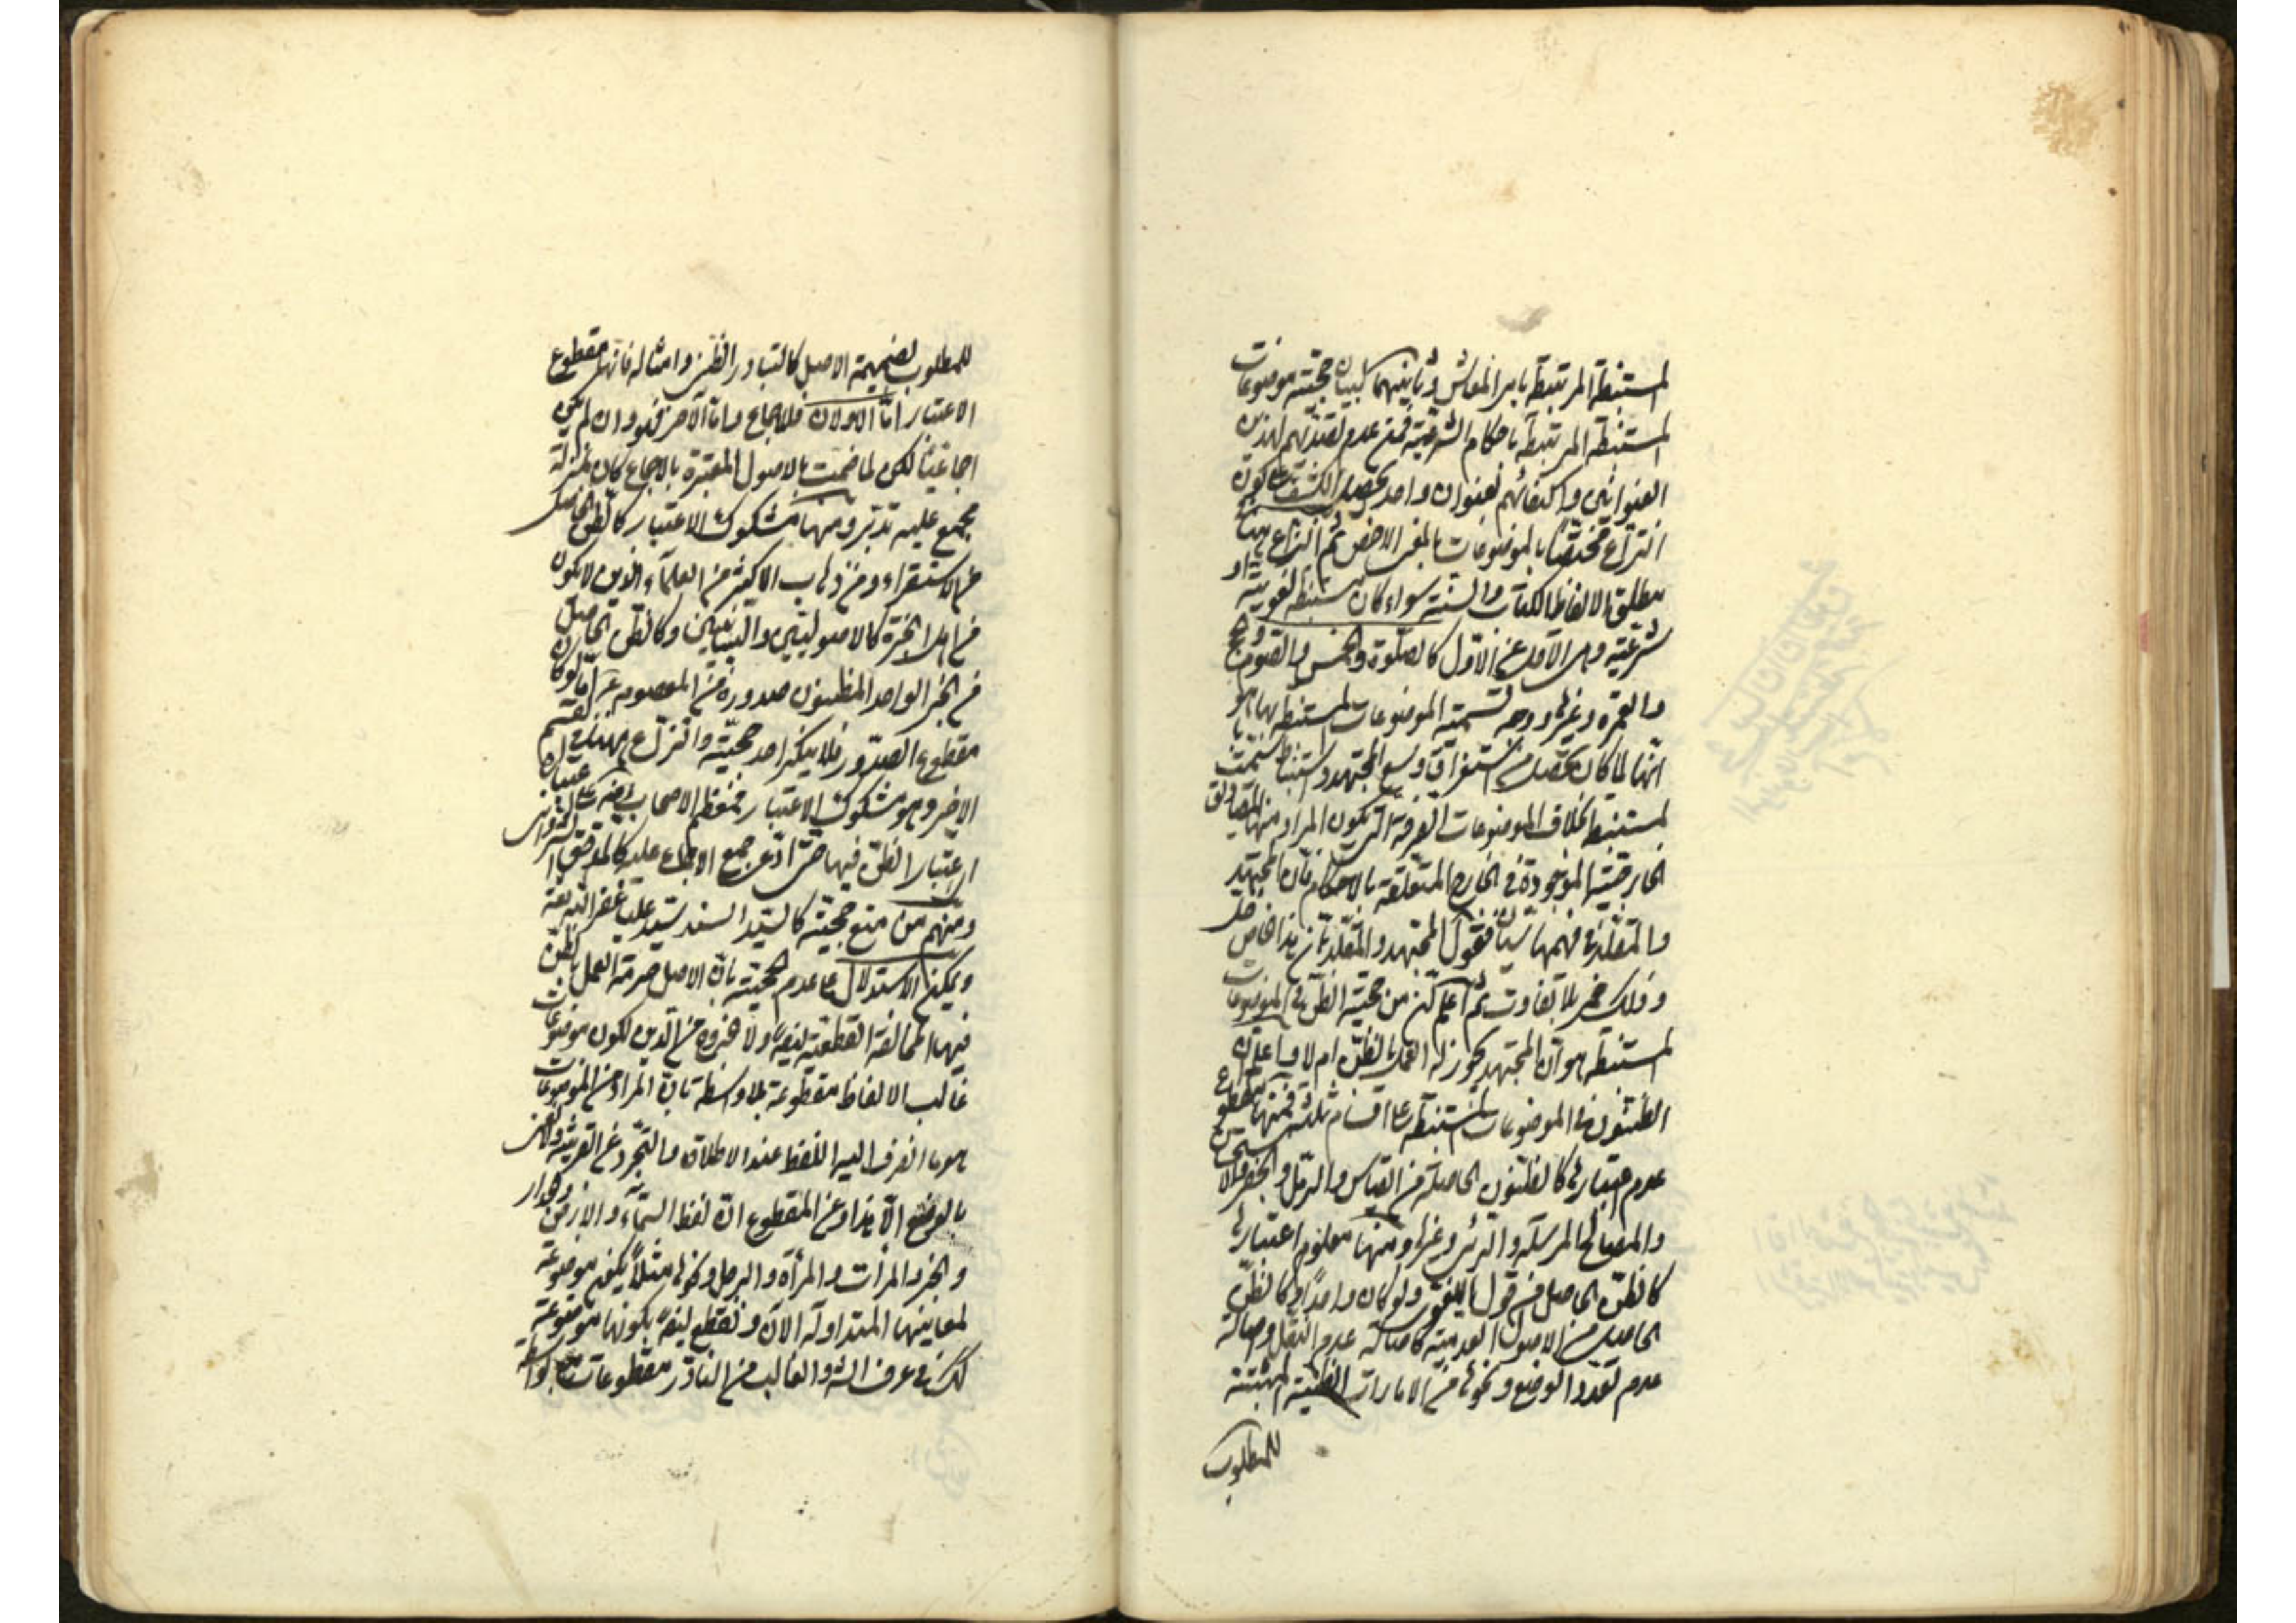 المستنبطة المرتبطة بامر المعاش وثانيهما لبيان حجية موضوعات
المستنبطة المرتبطة باحكام الشرعية فمن عدم تصديهم لهذين
العنوانين واكتفائهم بعنوان واحد يحصل الكشف عن كون
النزاع مختصا بالموضوعات بالمعنى الاخص ثم النزاع
مطلق الالفاظ الكتاب والسنة سواء كان مستنبطة لغوية او
شرعية وهى الاول عن الاول كالصلوة والخمس والصوم والحج
والعمرة وغيرها ووجه تسمية الموضوعات المستنبطة بها هو
انها لما كان يحصل من استفراغ وسع المجتهد واستنباط سميت
مستنبطة بخلاف الموضوعات الصرفة التي يكون المراد منها المصاديق
الخارجية الموجودة في الخارج المتعلقة بالاحكام فان المجتهد
والمقلد في فهمها سيان فيقول المجتهد والمقلد بان هذا خل
وذلك خمر بلا تفاوت ثم اعلم من حجية الظن في الموضوعات
المستنبطة هو ان المجتهد يجوز له العمل بالظن ام لا فاعلم ان
الظنون في الموضوعات المستنبطة على اقسام ثلثة فمنها مقطوع
عدم اعتبارها كالظنون الحاصلة من القياس والرمل والجفر والاستحسان
والمصالح المرسلة والرئى وغيرها ومنها معلوم اعتبارها
كالظن الحاصل من قول اللغوى ولو كان واحدا وكالظن
الحاصل من الاصول العدمية كاصالة عدم النقل واصالة
عدم تعدد الوضع ونحوها من الامارات الظنية المثبتة
للمطلوب
للمطلوب بضميمة الاصل كالتبادر الظنى وامثاله فانها مقطوع
الاعتبار اما الاولان فللاجماع واما الاخر فهو وان لم يكن
اجماعيا لكن لما ضمت بالاصول المعتبرة بالاجماع كان بمنزلة
مجمع عليه تدبر ومنها مشكوك الاعتبار كالظن الحاصل
من الاستقراء ومن ذهاب الاكثر من العلماء الذين لا يكون
من اهل الخبرة كالاصوليين والبيانيين وكالظن الحاصل
من الخبر الواحد المظنون صدوره من المعصوم اما لو كان
مقطوع الصدور فلا ينكر احد حجيته والنزاع هنا في القسم
الاخير وهو مشكوك الاعتبار فمعظم الاصحاب
اعتبار الظن فيها حتى ادعى جمع الاجماع عليه كالمدقق الشروانى
ومنهم من منع حجيته كالسيد السند سيد على غفر الله له
ويمكن الاستدلال على عدم الحجية بان الاصل حرمة العمل بالظن
فيها المخالفة القطعية ايضا ولا خروج من الدين لكون موضوعات
غالب الالفاظ مقطوعة بلا واسطة بان المراد من الموضوعات
هو ما انصرف اليه اللفظ عند الاطلاق والتجرد عن القرينة
بالوضع الا هذا ومن المقطوع ان لفظ السماء والارض والجدار
والخبز والمرات والمرأة والرجل ونحوها مثلا يكون موضوعة
لمعانيها المتداولة الان ونقطع ايضا بكونها موضوعة
لذلك في عرف الش والغالب من النادر مقطوعات بواسطة